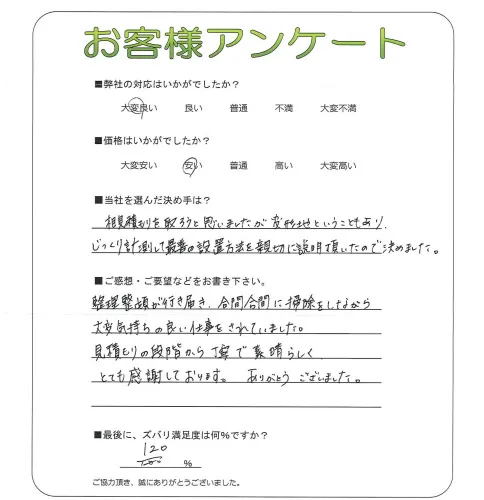 お客様アンケート
■弊社の対応はいかがでしたか?
大変良い 良い 普通 不満 大変不満
■価格はいかがでしたか?
大変安い 安い 普通 高い 大変高い
■当社を選んだ決め手は?
相見積りを取ろうと思いましたが変形地ということもあり、
じっくり計測して最善の設置方法を親切に説明頂いたので決めました。
■ご感想・ご要望などをお書き下さい。
整理整頓が行き届き、合間合間に掃除をしながら
大変気持ちの良い仕事をされていました。
見積もりの段階から丁寧で素晴らしく
とても感謝しております。 ありがとうございました。
■最後に、ズバリ満足度は何%ですか?
120
100 %
ご協力頂き、誠にありがとうございました。